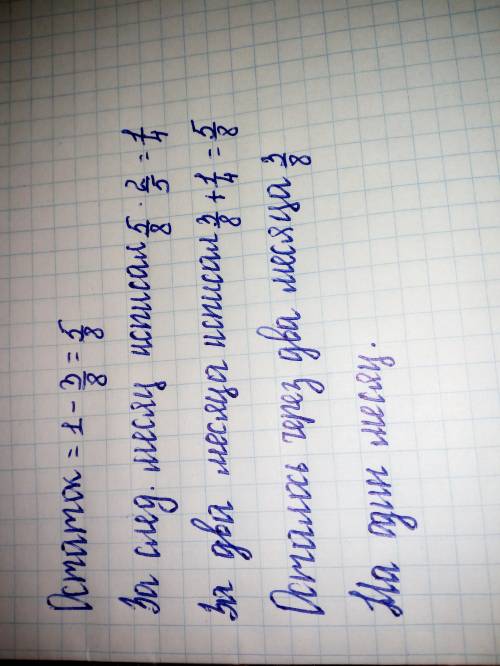 Остаток = 1 - 3/8 = 5/8
За след. месяц исписал 5/8 · 2/5 = 1/4
За два месяца исписал 3/8 + 1/4 = 5/8
Осталось через два месяца 3/8
На один месяц.